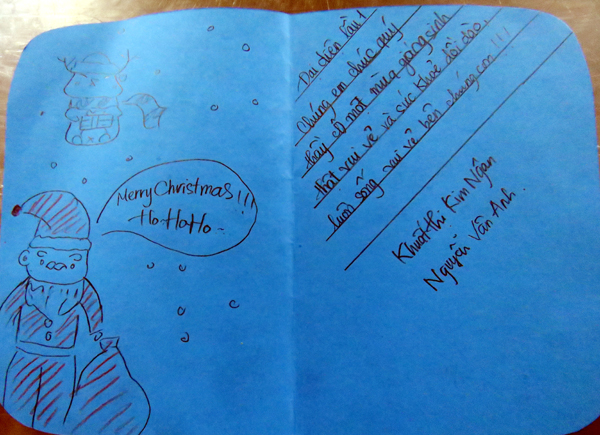 Merry Christmas!!!
Ho Ho Ho
Đại diện lầu 1
Chúng em chúc quý
thầy cô một mùa giáng sinh
thật vui vẻ và sức khỏe dồi dào,
luôn sống vui vẻ bên chúng em!!!
Khuất thị Kim Ngân
Nguyễn Vân Anh.